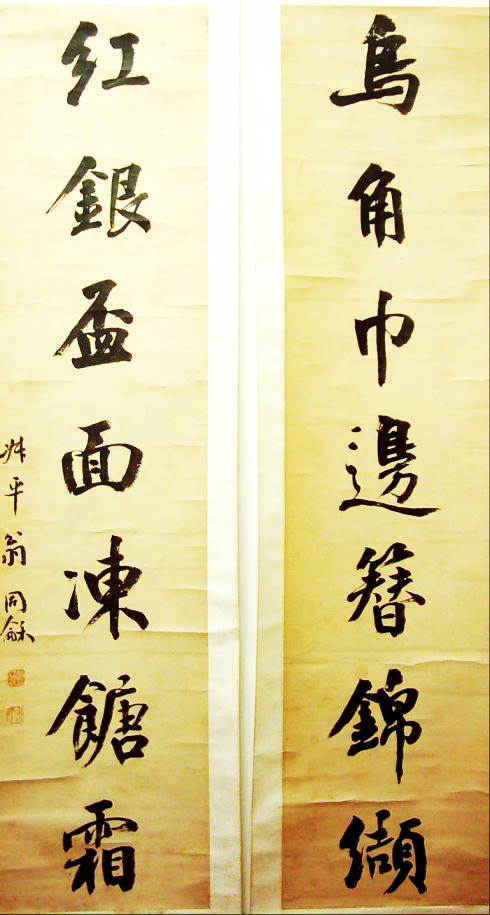 烏角巾邊簪錦纈
紅銀盃面凍餹霜
叔平翁同龢